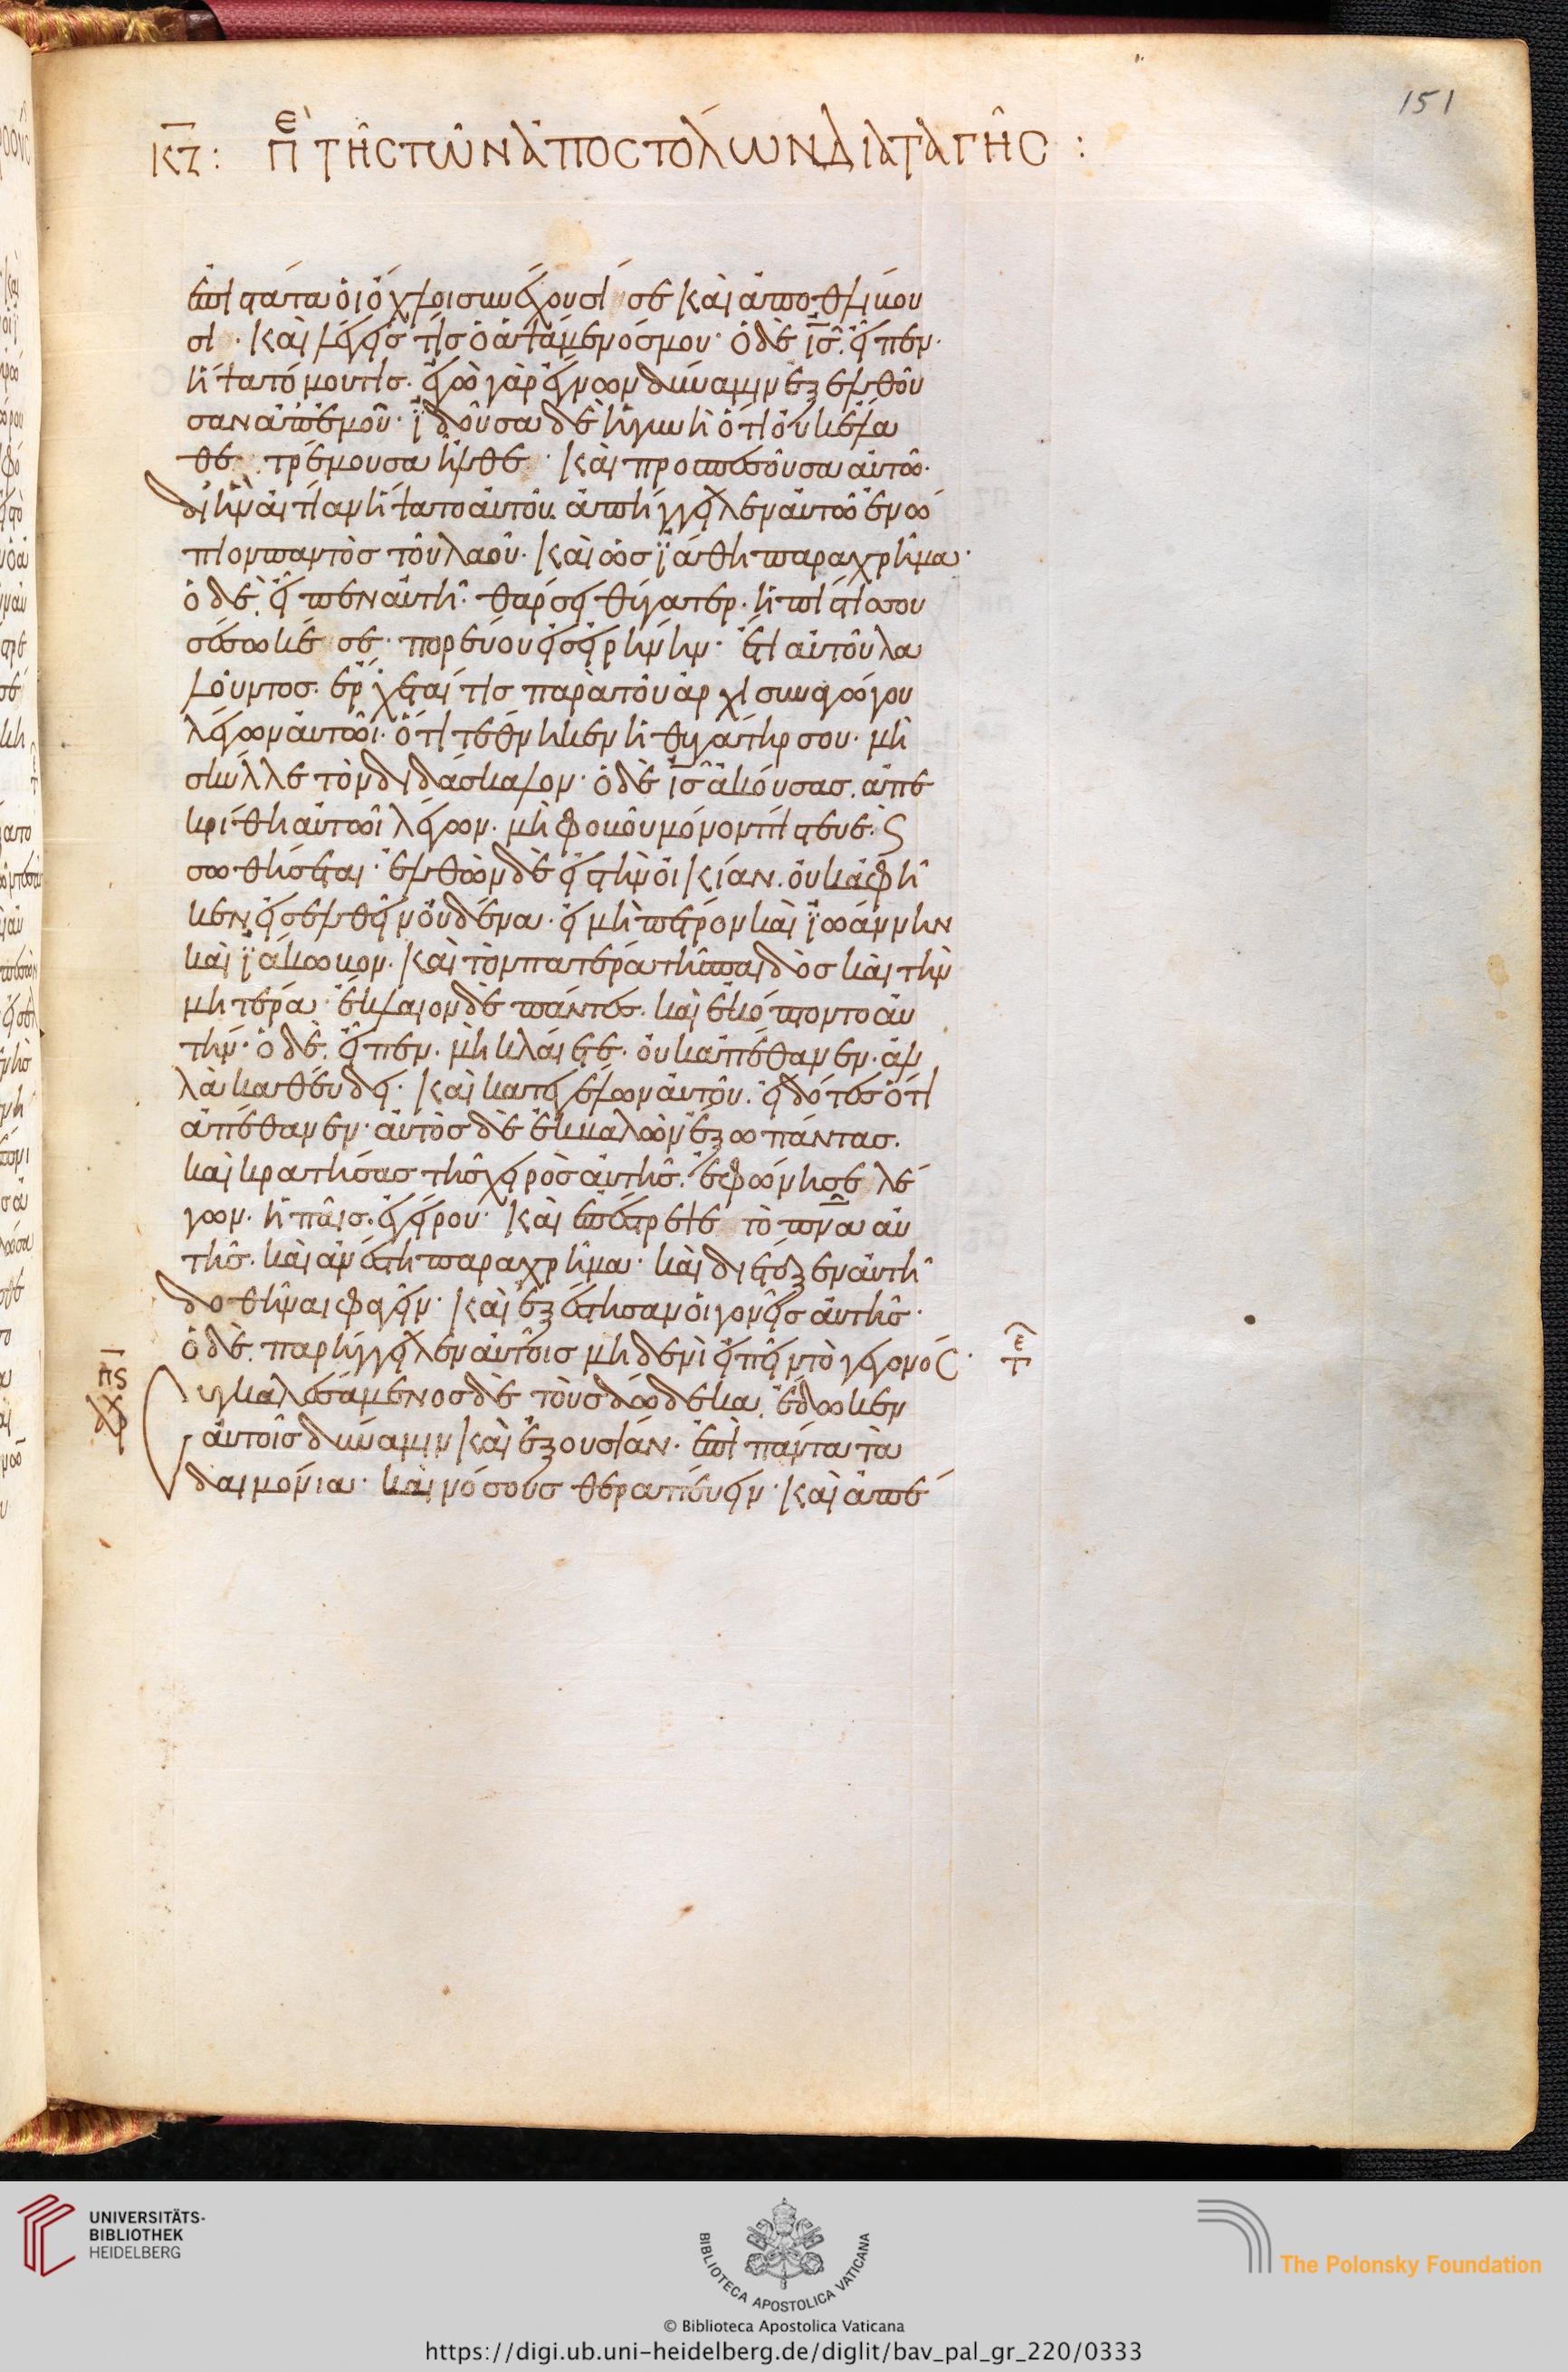 κζ: πε τῆς τῶν ἀποστόλων διαταγῆς :
151
ἐπιστάτα οἱ ὄχλοι συνέχουσί σε καὶ ἀποθλίβου
σι · καὶ λέγεις τίς ὁ ἁψάμενός μου· ὁ δὲ ι̅ς̅. εἶπεν·
ἥψατό μου τίς. ἐγὼ γὰρ ἔγνων δύναμιν ἐξελθοῦ
σαν ἀπ' ἐμοῦ· ἰδοῦσα δὲ ἡ γυνὴ ὅτι οὐκ ἔλα
θε. τρέμουσα ἦλθε· καὶ προσπεσοῦσα αὐτῶ·
δι ἣν αἰτίαν ἥψατο αὐτοῦ. ἀπήγγειλεν αὐτῶ ἐνώ
πιον παντὸς τοῦ λαοῦ· καὶ ὡς ἰάθη παραχρῆμα·
ὁ δὲ. εἶπεν αὐτῆ· θάρσει θύγατερ. ἡ πίστις σου
σέσωκέ σε· πορεύου εἰς εἰρήνην· ἔτι αὐτοῦ λα
λοῦντος. ἔρχεταί τις παρὰ τοῦ ἀρχισυναγώγου
λέγων αὐτῶι· ὅτι τέθνηκεν ἡ θυγάτηρ σου· μὴ
σκύλλε τὸν διδάσκαλον· ὁ δὲ ι̅ς̅ ἀκούσας. ἀπε
κρίθη αὐτῶι λέγων. μὴ φοβοῦ μόνον πίστευε· ϛ
σωθήσεται· ἐλθὼν δὲ εἰς τὴν οἰκίαν. οὐκ ἀφῆ
κεν εἰσελθεῖν οὐδένα· εἰ μὴ πέτρον καὶ ἰωάννην
καὶ ἰάκωβον· καὶ τὸν πατέρα τῆς παιδὸς καὶ τὴν
μητέρα· ἔκλαιον δὲ πάντες. καὶ ἐκόπτοντο αὐ
τήν· ὁ δὲ. εἶπεν. μὴ κλαίετε· οὐκ ἀπέθανεν. ἀλ
λὰ καθεύδει· καὶ κατεγέλων αὐτοῦ. εἰδότες ὅτι
ἀπέθανεν· αὐτὸς δὲ ἐκβαλὼν ἔξω πάντας.
καὶ κρατήσας τῆς χειρὸς αὐτῆς. ἐφώνησε λέ
γων. ἡ παῖς. ἐγείρου· καὶ ἐπέστρεψε τὸ πν̅α̅ αὐ
τῆς. καὶ ἀνέστη παραχρῆμα· καὶ διέταξεν αὐτῆ
δοθῆναι φαγεῖν· καὶ ἐξέστησαν οἱ γονεῖς αὐτῆς·
ὁ δὲ. παρήγγειλεν αὐτοῖς μηδενὶ εἰπεῖν τὸ γεγονός·
τε
π̅ϛ̅
Συγκαλεσάμενος δὲ τοὺς δώδεκα. ἔδωκεν
αὐτοῖς δύναμιν καὶ ἐξουσίαν. ἐπὶ πάντα τὰ
δαιμόνια· καὶ νόσους θεραπεύειν· καὶ ἀπέ
UNIVERSITÄTS-
BIBLIOTHEK
HEIDELBERG
BIBLIOTECA APOSTOLICA VATICANA
The Polonsky Foundation
© Biblioteca Apostolica Vaticana
https://digi.ub.uni-heidelberg.de/diglit/bav_pal_gr_220/0333